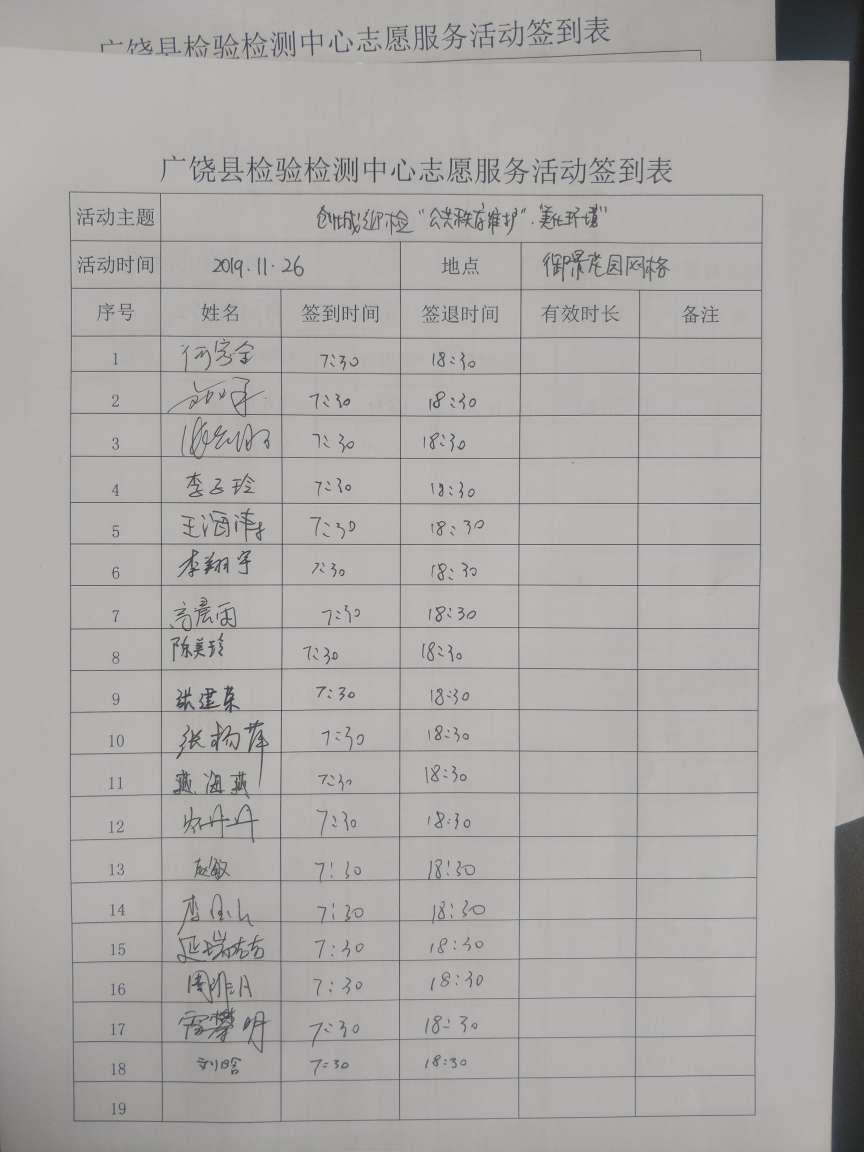 广饶县检验检测中心志愿服务活动签到表
广饶县检验检测中心志愿服务活动签到表
活动主题 创城迎检"公共秩序维护"."美化环境"
活动时间 2019.11.26 地点 御景花园网格
序号 姓名 签到时间 签退时间 有效时长 备注
1 7:30 18:30
2 7:30 18:30
3 7:30 18:30
4 李玉玲 7:30 18:30
5 王海涛 7:30 18:30
6 李翔宇 7:30 18:30
7 高晨雨 7:30 18:30
8 陈美玲 7:30 18:30
9 张建荣 7:30 18:30
10 张杨萍 7:30 18:30
11 燕海燕 7:30 18:30
12 7:30 18:30
13 7:30 18:30
14 7:30 18:30
15 延瑞喆 7:30 18:30
16 7:30 18:30
17 7:30 18:30
18 刘晗 7:30 18:30
19